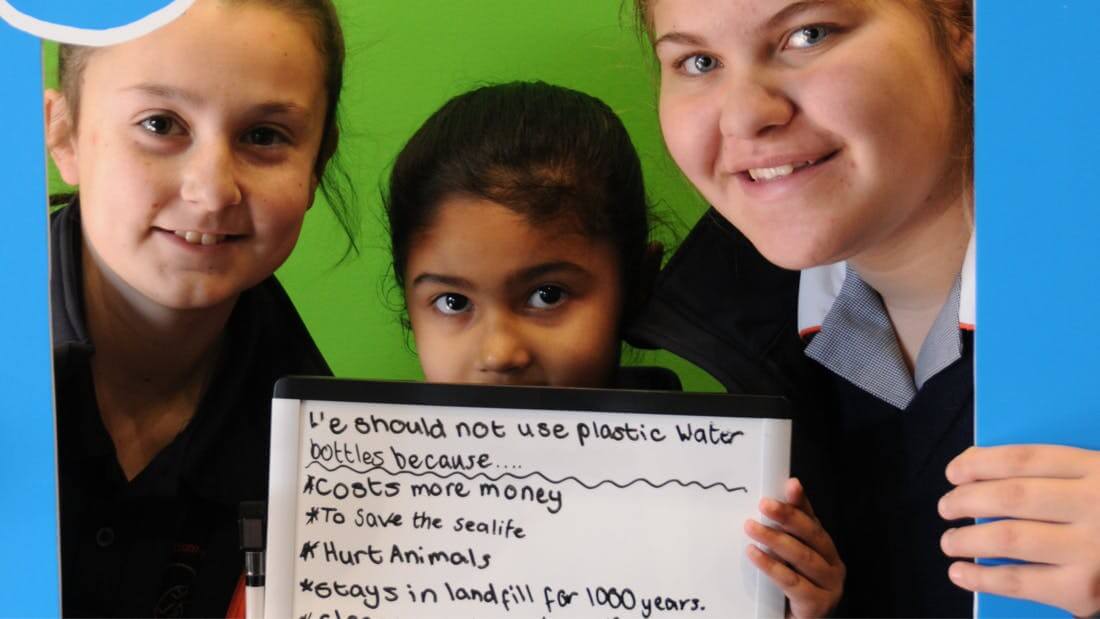 We should not use plastic Water
bottles because....
*Costs more money
*To save the sealife
*Hurt Animals
*Stays in landfill for 1000 years.